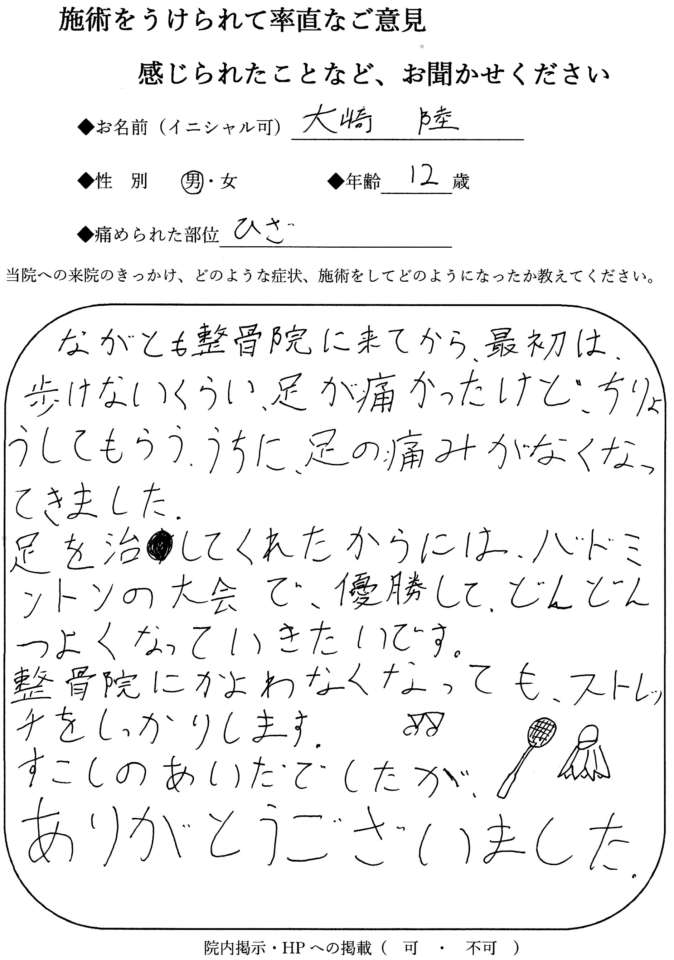 施術をうけられて率直なご意見
感じられたことなど、お聞かせください
◆お名前（イニシャル可） 大崎 陸
◆性 別 男・女 ◆年齢 12 歳
◆痛められた部位 ひざ
当院への来院のきっかけ、どのような症状、施術をしてどのようになったか教えてください。
ながとも整骨院に来てから、最初は、
歩けないくらい、足が痛かったけど、ちりょ
うしてもらう、うちに、足の痛みがなくなっ
てきました。
足を治してくれたからには、バドミ
ントンの大会で、優勝して、どんどん
つよくなっていきたいです。
整骨院にかよわなくなっても、ストレッ
チをしっかりします。
すこしのあいだでしたが、
ありがとうございました。
院内掲示・HPへの掲載（ 可 ・ 不可 ）